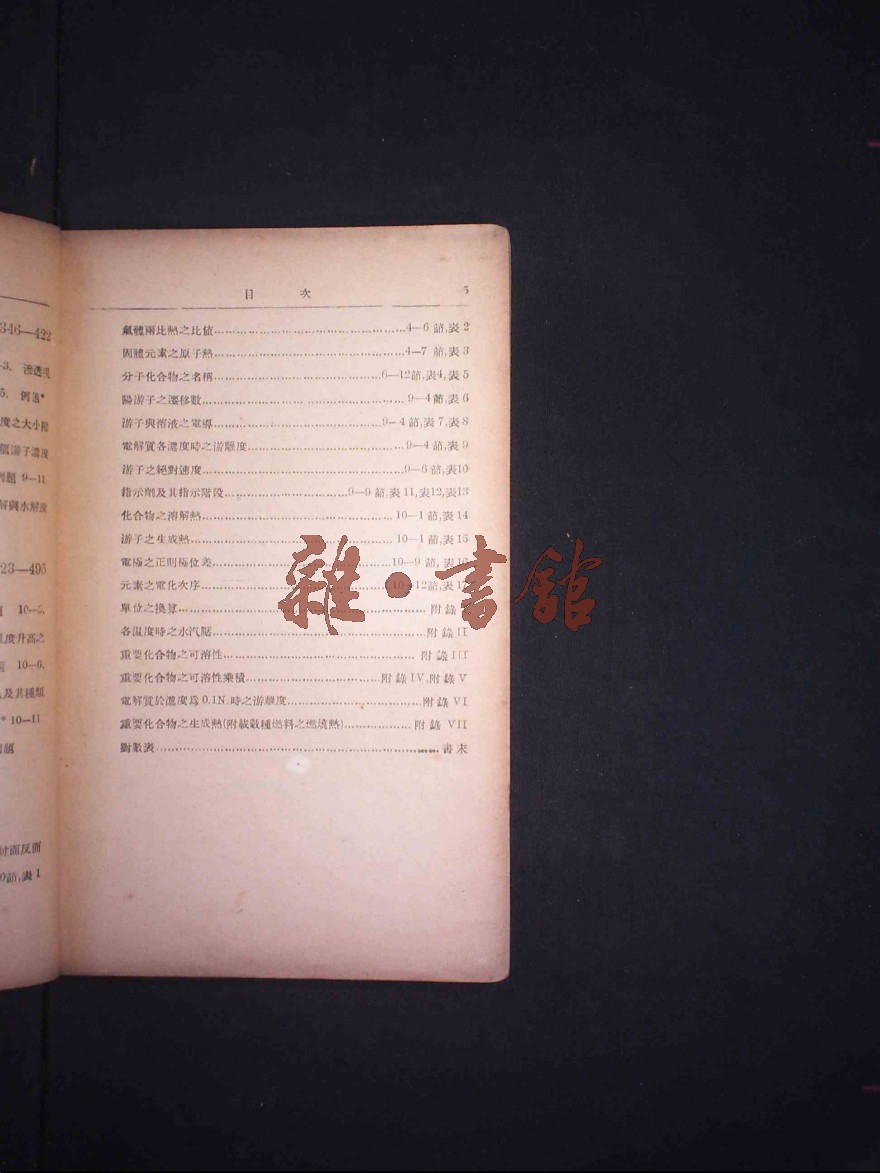 346—422
-3. 滲透現
度之大小附
游子濃度
例題 9—11
解與水解度
23—495
10—3.
溫度升高之
10—6.
及其種類
* 10—11
封面反面
0節,表1
目 次 5
氣體兩比熱之比值……4—6 節,表 2
固體元素之原子熱……4—7 節,表 3
分子化合物之名稱……6—12節,表4,表 5
陽游子之遷移數……9—4 節,表 6
游子與溶液之電導……9—4 節,表 7,表 8
電解質各濃度時之游離度……9—4 節,表 9
游子之絕對速度……9—6 節,表10
指示劑及其指示階段……9—9 節,表 11,表12,表13
化合物之溶解熱……10—1 節,表 14
游子之生成熱……10—1 節,表 15
電極之正則極位差……10—9 節,表 16
元素之電化次序……10—12節,表 1
單位之換算……附錄
各溫度時之水汽壓……附錄 II
重要化合物之可溶性……附錄 III
重要化合物之可溶性乘積……附錄 IV,附錄 V
電解質於濃度爲 0.1N. 時之游離度……附錄 VI
重要化合物之生成熱(附載數種燃料之燃燒熱)……附錄 VII
對數表……書末
雜·書館